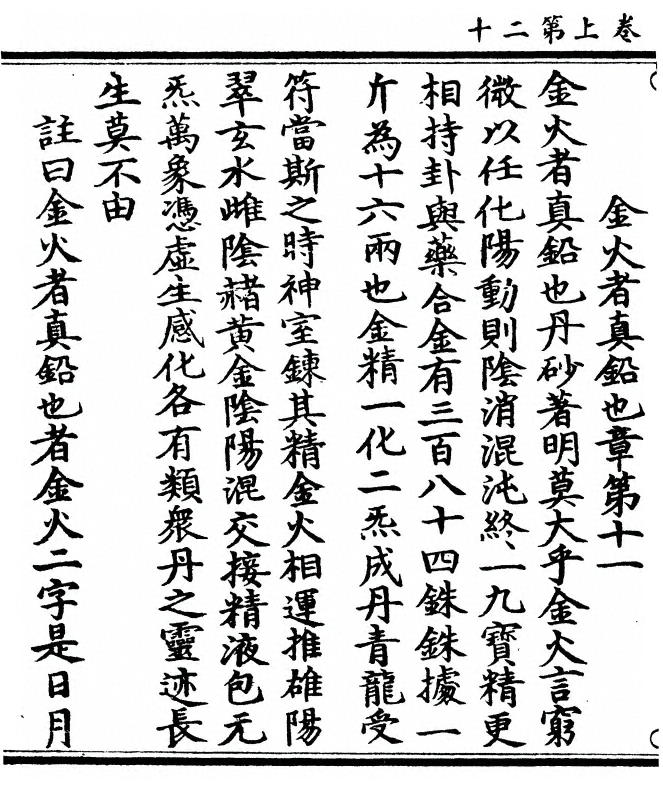 卷上第二十
金火者真鉛也章第十一
金火者真鉛也丹砂著明莫大乎金火言窮
微以任化陽動則陰消混沌終一九寶精更
相持卦與藥合金有三百八十四銖銖據一
斤為十六兩也金精一化二炁成丹青龍受
符當斯之時神室鍊其精金火相運推雄陽
翠玄水雌陰赭黃金陰陽混交接精液包元
炁萬象憑虛生感化各有類眾丹之靈迹長
生莫不由
註曰金火者真鉛也者金火二字是日月